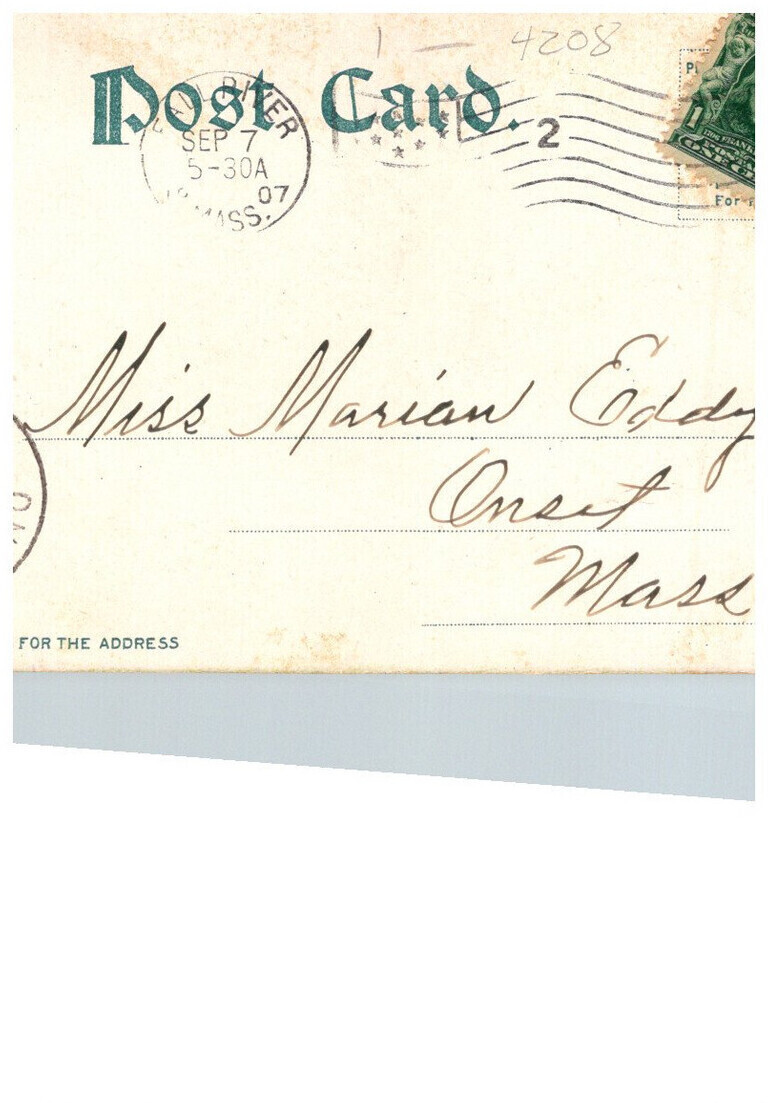 1 — 4208
Post Card.
FALL RIVER
SEP 7
5-30A
07
MASS.
2
1
ONE CE
For
Miss Marian Eddy
Onset
Mass
FOR THE ADDRESS